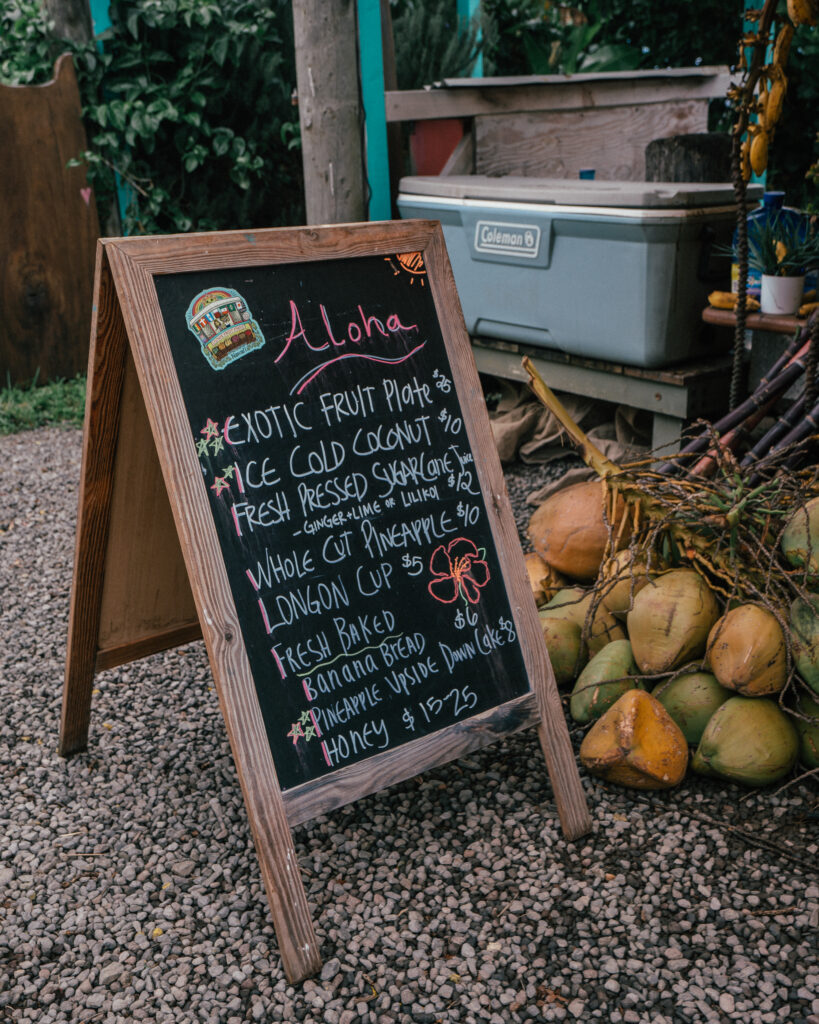 Coleman
Aloha
EXOTIC FRUIT Plate $25
ICE COLD COCONUT $10
FRESH PRESSED SUGARCane Juice $12
-GINGER+LIME OR LILIKOI
WHOLE CUT PINEAPPLE $10
LONGON CUP $5
FRESH BAKED
Banana BREAD $6
PINEAPPLE UPSIDE DOWN CAKE $8
HONEY $15-25